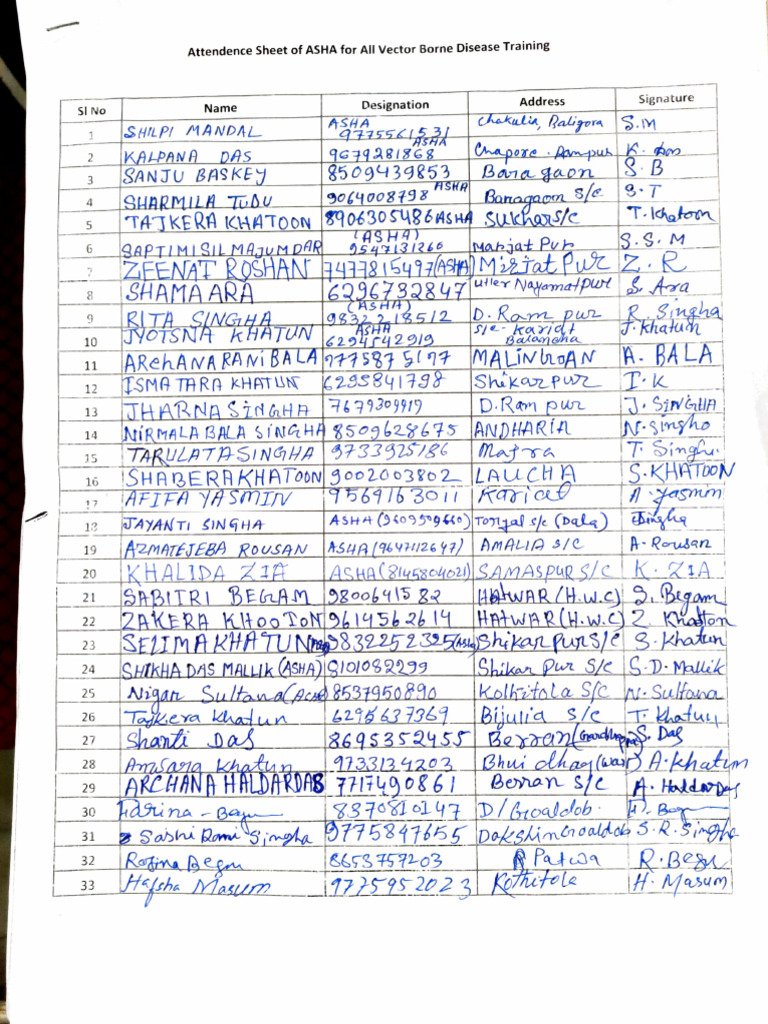 Attendence Sheet of ASHA for All Vector Borne Disease Training
Sl No Name Designation Address Signature
1 SHILPI MANDAL ASHA 9775561531 Chakulia, Baligora S.M
2 KALPANA DAS 9679281868 ASHA Chapore Rampur K. Das
3 SANJU BASKEY 8509439853 Baragaon S.B
4 SHARMILA TUDU 9064008798 ASHA Baragaon S/C S.T
5 TAJKERA KHATOON 8906305486 ASHA Sukhar S/C T. Khatoon
6 SAPTIMI SIL MAJUMDAR (ASHA) 9547131260 Marjat Pur S.S.M
7 ZEENAT ROSHAN 7477815497 (ASHA) Mirjat Pur Z.R
8 SHAMA ARA 6296732847 Utter Nayamatpur S. Ara
9 RITA SINGHA (ASHA) 9832218512 D. Ram pur R. Singha
10 JYOTSNA KHATUN ASHA 6294542919 S/C- Kariat J. Khatun
11 ARCHANA RANI BALA 7775875177 MALINGOAN A. BALA
12 ISMATARA KHATUN 6295841798 Shikarpur I.K
13 JHARNA SINGHA 7679309919 D. Ram pur J. SINGHA
14 NIRMALA BALA SINGHA 8509628675 ANDHARIA N. Singho
15 TARULATA SINGHA 9733925186 Majra T. Singha
16 SHABERA KHATOON 9002003802 LAUCHA S. KHATOON
17 AFIFA YASMIN 9569163011 Kariat A. Yasmin
18 JAYANTI SINGHA ASHA (9609509660) S/C (Dala) JSingha
19 AZMATEJEBA ROUSAN ASHA (9647112647) AMALIA S/C A. Rousan
20 KHALIDA ZIA ASHA (8145804021) SAMASPUR S/C K. ZIA
21 SABITRI BEGAM 9800641582 HATWAR (H.W.C) S. Begam
22 ZAKERA KHOOTON 9614562614 HATWAR (H.W.C) Z. Khatton
23 SELIMA KHATUN 9832252325 (Asha) Shikar pur S/C S. Khatun
24 SHIKHA DAS MALLIK (ASHA) 8101082299 Shikar Pur S/C S.D. Mallik
25 Nigar Sultana 8537950890 Kolhitola S/C N. Sultana
26 Tajkera Khatun 6295637369 Bijulia S/C T. Khatun
27 Shanti Das 8695352455 Berran S. Das
28 Khatun 9733134203 Bhui dhag A. Khatun
29 ARCHANA HALDAR DAS 7717490861 Berran S/C A. Haldar Das
30 Farina - Begum 8370810147 D/Goaldob. F. Begum
31 Sashi Rani Singha 9775847655 Dakshin Goaldob S.R. Singha
32 Rojina Begum 8653757203 Patwa R. Begum
33 Hafsha Masum 9775952023 Kothitola H. Masum